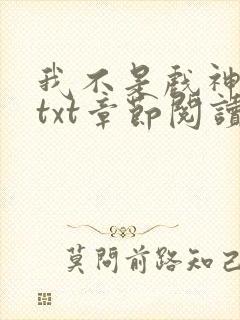 我不是戲神
txt章節閱讀
莫問前路知己